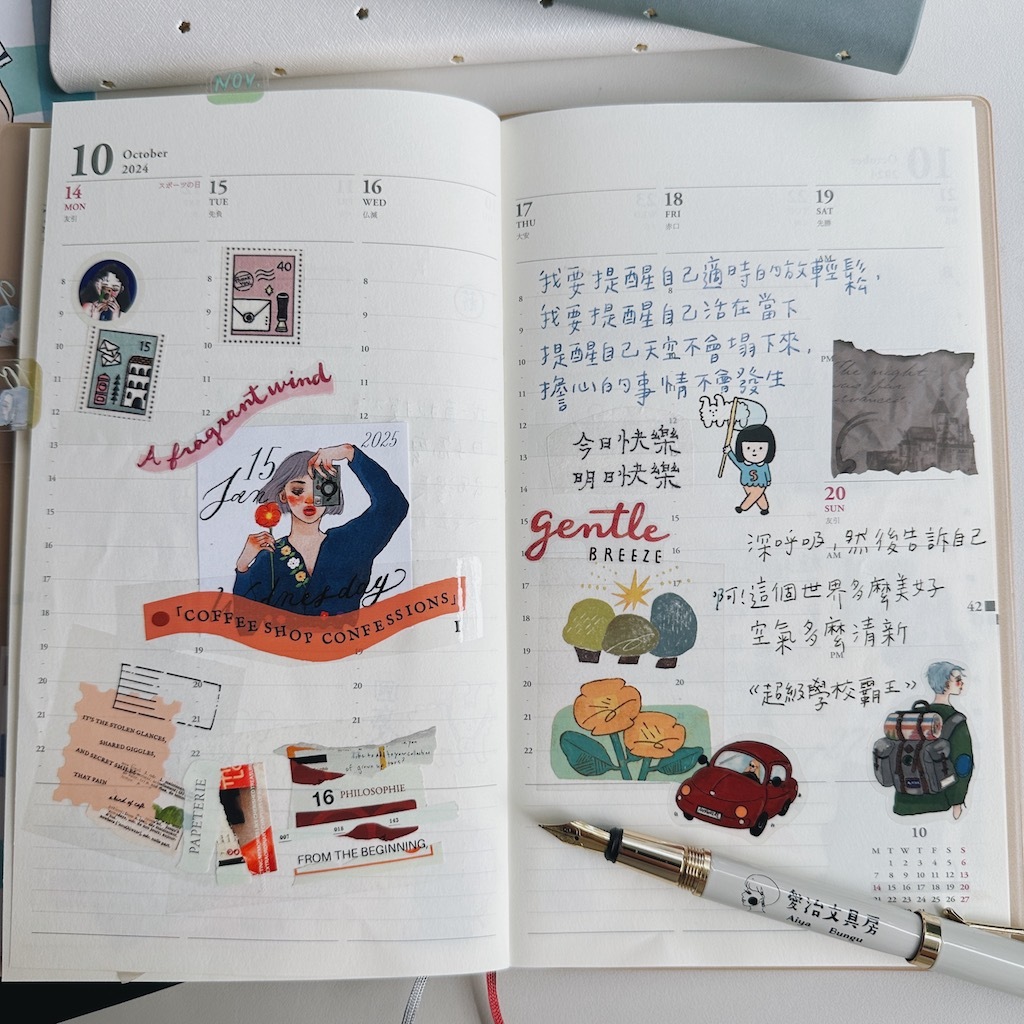 NOV.
10 October
2024
14
MON
友引
スポーツの日
15
TUE
先負
16
WED
仏滅
8
9
10
11
12
13
14
15
16
17
18
19
20
21
22
40
THANK YOU
15
A fragrant wind
2025
15
Jan
Wednesday
「COFFEE SHOP CONFESSIONS」
IT'S THE STOLEN GLANCES,
SHARED GIGGLES,
AND SECRET SMILES
THAT PAIN
a kind of cafe
PAPETERIE
16 PHILOSOPHIE
007 018 143
FROM THE BEGINNING,
17
THU
大安
18
FRI
赤口
19
SAT
先勝
我要提醒自己適時的放輕鬆,
我要提醒自己活在當下
提醒自己天空不會塌下來,
擔心的事情不會發生
今日快樂
明日快樂
S
gentle
BREEZE
20
SUN
友引
深呼吸,然後告訴自己
AM
啊!這個世界多麼美好
空氣多麼清新
PM
《超級學校霸王》
42
10
M T W T F S S
1 2 3 4 5 6
7 8 9 10 11 12 13
14 15 16 17 18 19 20
愛治文具房
Aiya Bungu